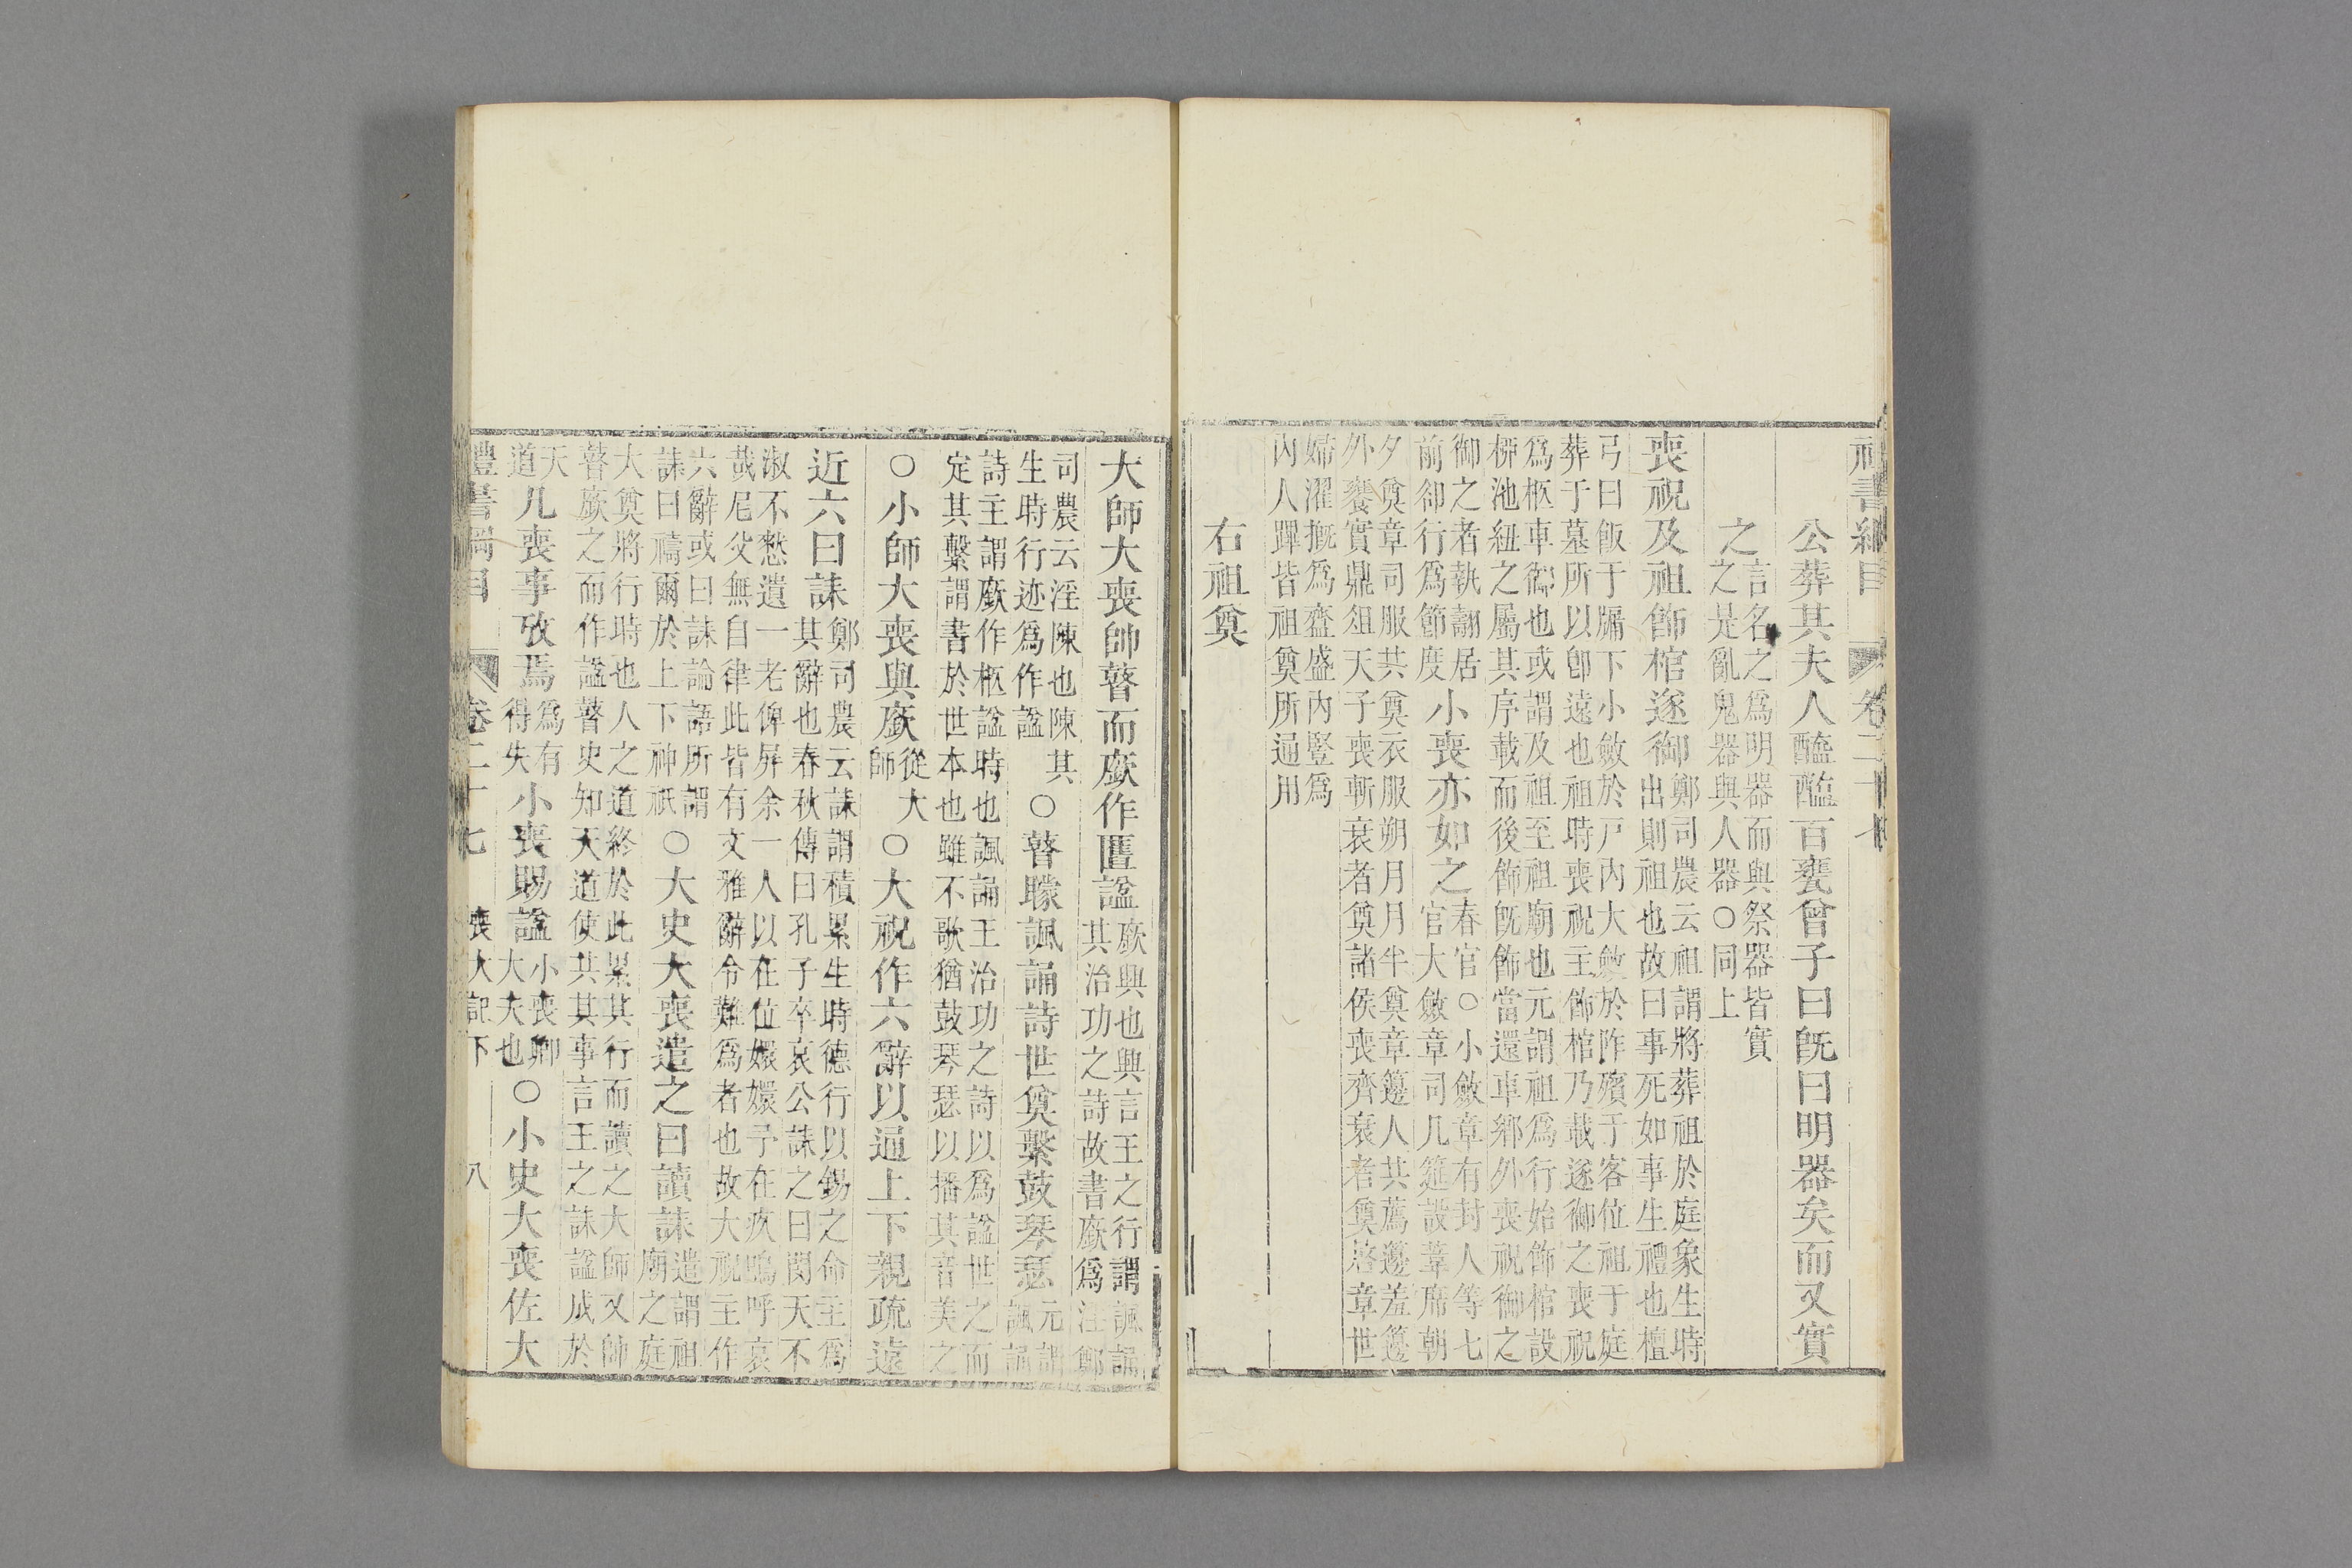 禮書綱目 卷二十七
公葬其夫人醯醢百甕曾子曰旣曰明器矣而又實
之言名之爲明器而與祭器皆實
之是亂鬼器與人器○同上
喪祝及祖飾棺遂御鄭司農云祖謂將葬祖於庭象生時
出則祖也故曰事死如事生禮也檀
弓曰飯于牖下小斂於戸内大斂於阼殯于客位祖于庭
葬于墓所以卽遠也祖時喪祝主飾棺乃載遂御之喪祝
爲柩車御也或謂及祖至祖廟也元謂祖爲行始飾棺設
桺池紐之屬其序載而後飾旣飾當還車鄉外喪祝御之
御之者執翿居
前卻行爲節度小喪亦如之春官○小斂章有封人等七
官大斂章司几筵設葦席朝
夕奠章司服共奠衣服朔月月半奠章籩人共薦籩羞籩
外饔實鼎俎天子喪斬衰者奠諸侯喪齊衰者奠啓章世
婦濯摡爲齍盛内豎爲
内人蹕皆祖奠所通用
右祖奠
大師大喪帥瞽而廞作匶謚廞興也興言王之行謂諷誦
其治功之詩故書廞爲淫鄭
司農云淫陳也陳其
生時行迹爲作謚○瞽矇諷誦詩世奠繫鼓琴瑟元謂
諷誦
詩主謂廞作柩謚時也諷誦王治功之詩以爲謚世之而
定其繫謂書於世本也雖不歌猶鼓琴瑟以播其音美之
○小師大喪與廞從大
師○大祝作六辭以通上下親疏遠
近六曰誄鄭司農云誄謂積累生時德行以錫之命主爲
其辭也春秋傳曰孔子卒哀公誄之曰閔天不
淑不憖遺一老俾屏余一人以在位嬛嬛予在疚嗚呼哀
哉尼父無自律此皆有文雅辭令難爲者也故大祝主作
六辭或曰誄論語所謂
誄曰禱爾於上下神祇○大史大喪遣之日讀誄遣謂祖
廟之庭
大奠將行時也人之道終於此累其行而讀之大師又帥
瞽廞之而作謚瞽史知天道使共其事言王之誄謚成於
天
道凡喪事攷焉爲有
得失小喪賜謚小喪卿
大夫也○小史大喪佐大
禮書綱目 卷二十七 喪大記下 八